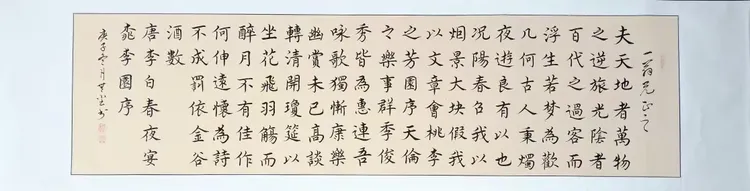 一翁兄正之
夫天地者萬物
之逆旅光陰者
百代之過客而
浮生若夢為歡
几何古人秉燭
夜遊良有以也
况陽春召我以
烟景大块假我
以文章會桃李
之芳園序天倫
之樂事群季俊
秀皆為惠連吾
咏歌獨慚康樂
幽賞未已高談
轉清開瓊筵以
坐花飛羽觴而
醉月不有佳作
何伸遠懷為詩
不成罰依金谷
酒數
唐李白春夜宴
桃李園序
庚子